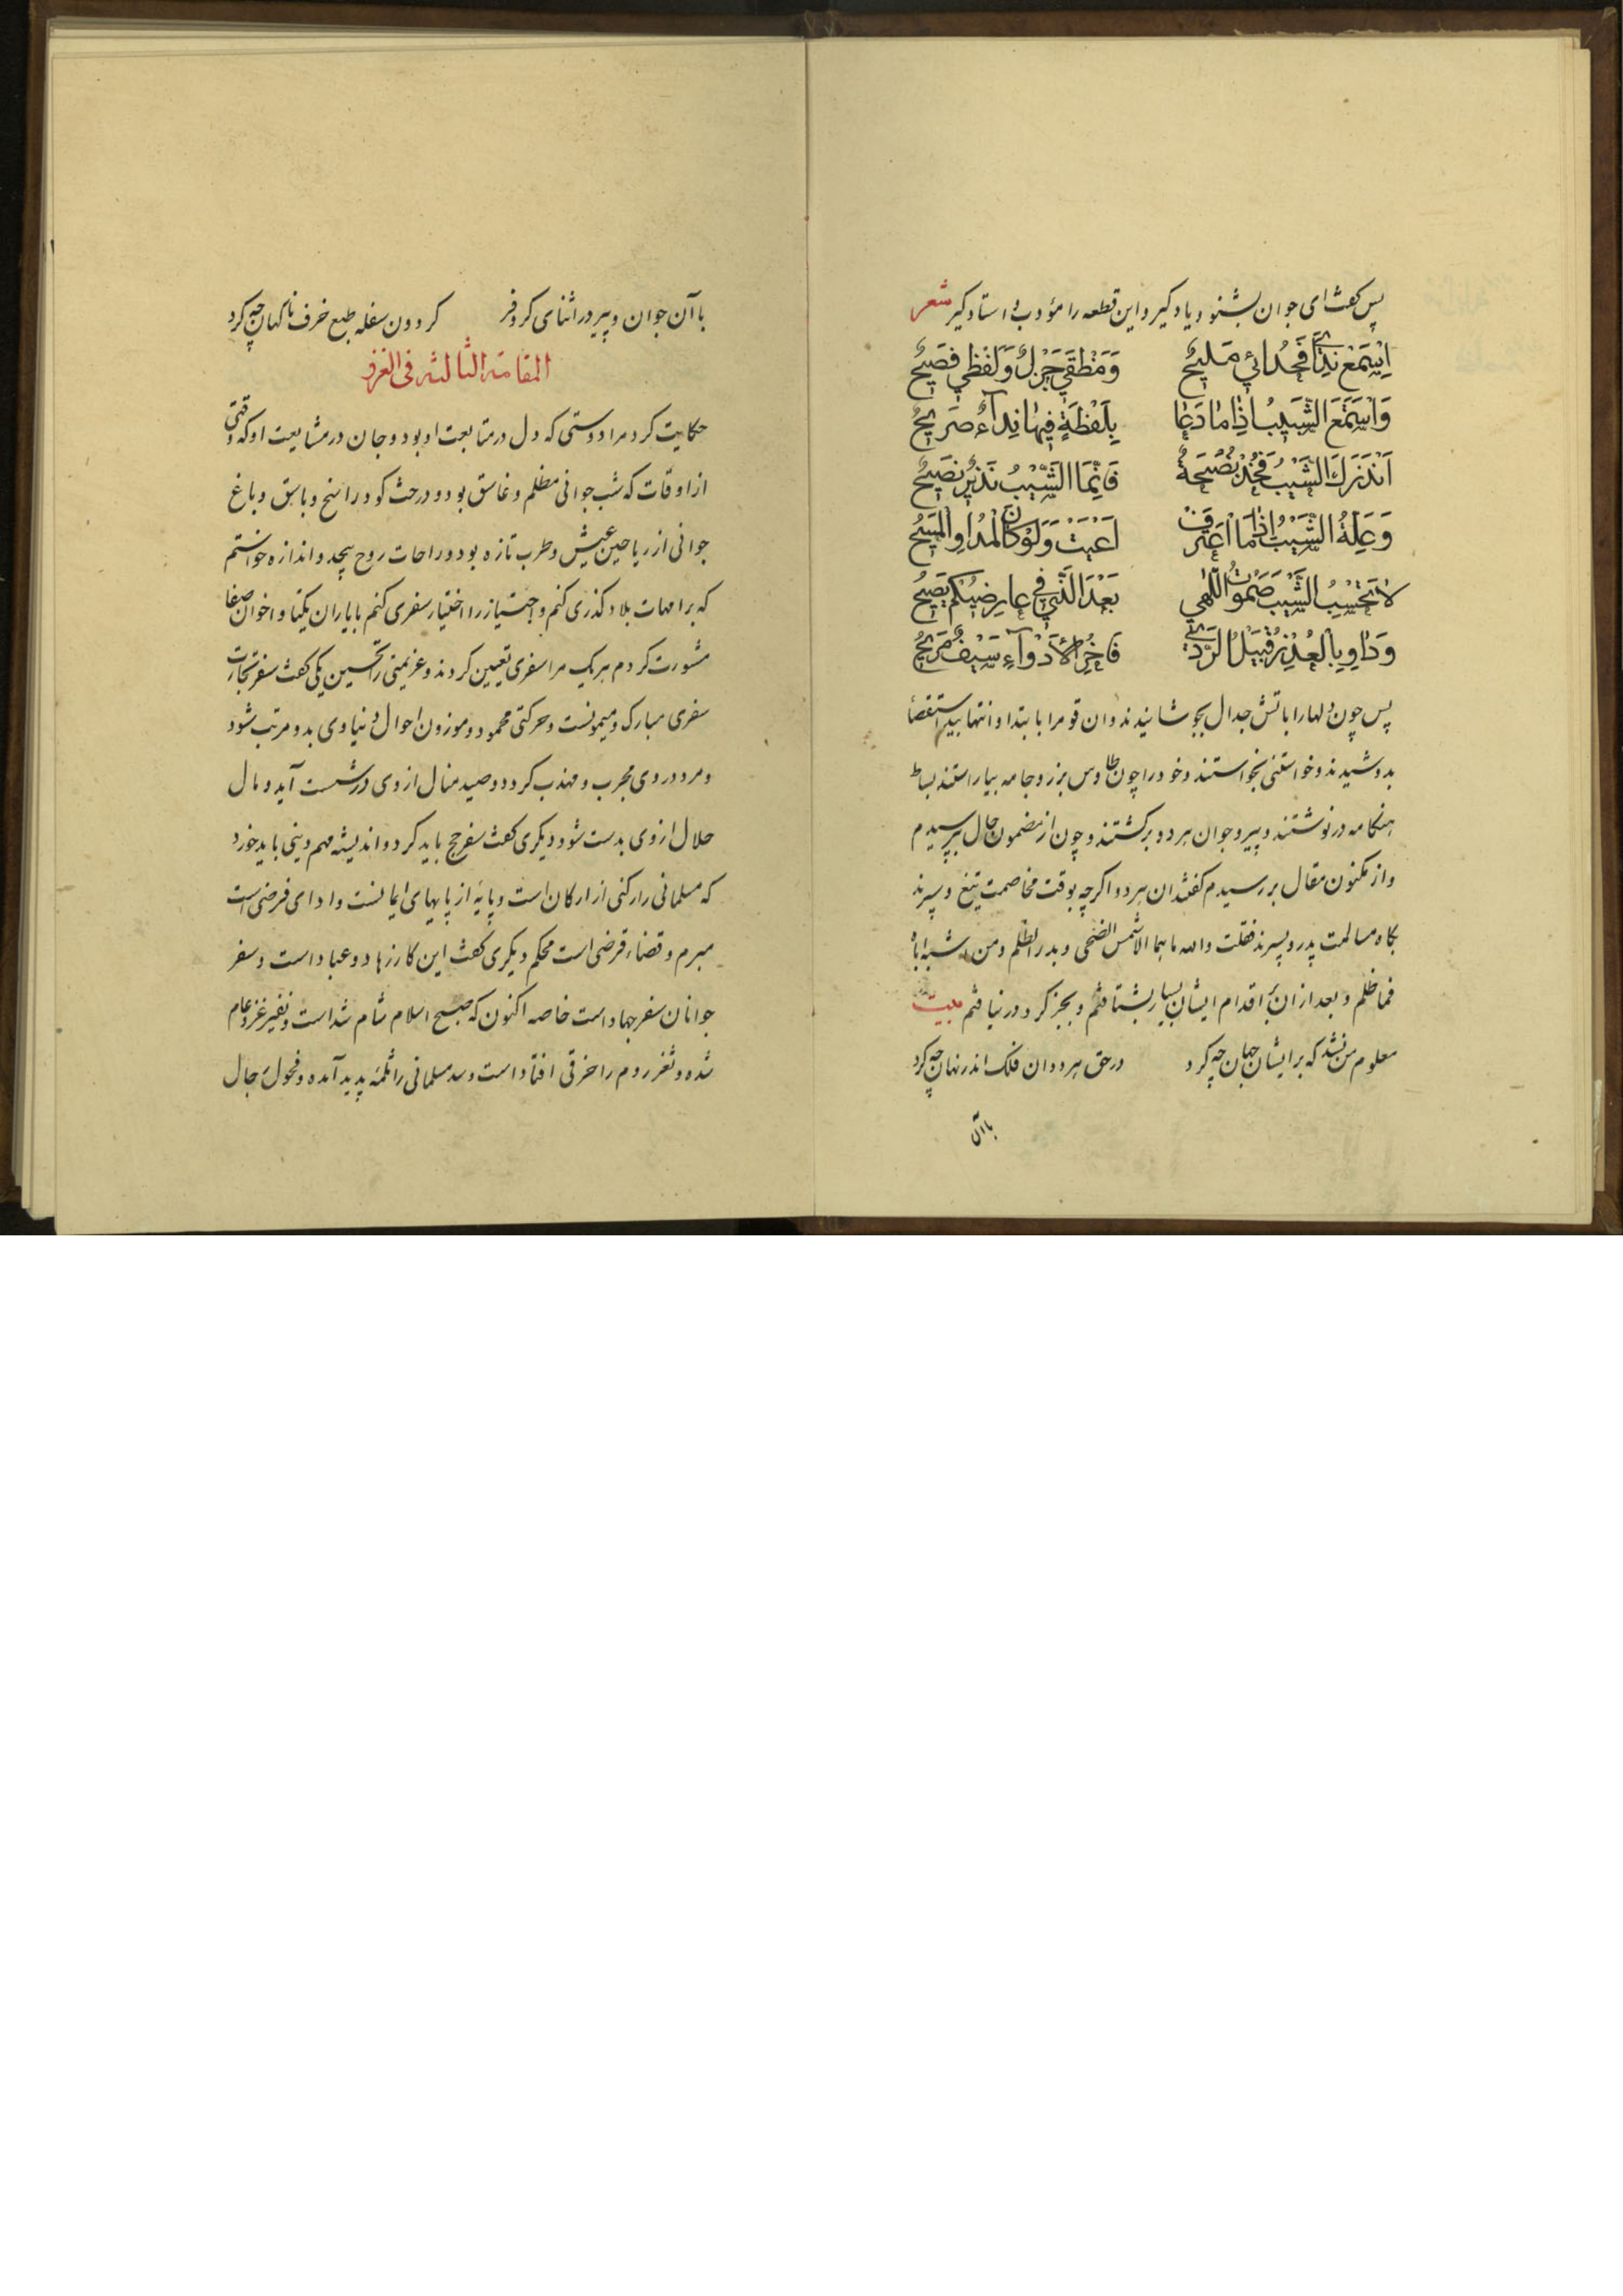 پس کفت ای جوان بشنو و یاد کیر و این قطعه را مؤدب و استاد کیر شعر
اِسْمَعْ نِدَائِي فَحُدَائِي مَلِيحٌ وَمَنْطِقِي جَزْلٌ وَلَفْظِي فَصِيحٌ
وَاسْتَمِعِ الشَّيْبَ اِذَا مَا دَعَا بِلَفْظَةٍ فِيهَا نِدَآءٌ صَرِيحٌ
اَنْذَرَكَ الشَّيْبُ فَخُذْ نُصْحَهُ فَاِنَّمَا الشَّيْبُ نَذِيرٌ نَصِيحٌ
وَعِلَّةُ الشَّيْبِ اِذَا مَا اعْتَرَفَتْ اَعْيَتْ وَلَوْ كَانَ الْمُدَاوِ الْمَسِيحُ
لَا تَحْسِبِ الشَّيْبَ صَمُوتُ اللَّهٰي بَعْدَ الَّذِي فِي عَارِضَيْكُمْ يَصِيحُ
وَدَاوِ بِالْعُذْرِ قُبَيْلَ الرَّدٰى فَاٰخِرُ الْاَدْوَآءِ سَيْفٌ مُرِيحٌ
پس چون دلها را باتش جدال بجوشانیدند وان قوم را بابتدا و انتها بید استقصا
بدوشیدند و خواستنی بخواستند و خود را چون طاوس بزر و جامه بیاراستند بساط
هنکامه درنوشتند و پیر و جوان هر دو برکشتند و چون از مضمون حال بپرسیدم
و از مکنون مقال بررسیدم کفتند ان هر دو اکرچه بوقت مخاصمت تیغ و سپرند
بکاه مسالمت پدر و پسرند فقلت والله ما هما الا شمس الضحی و بدر الظلم و من اشبه اباه
فما ظلم و بعد از ان بر اقدام ایشان بسیار بشتافتم و بجز کرد درنیافتم بیت
معلوم من نشد که بر ایشان جهان چه کرد در حق هر دو ان فلک اندر نهان چه کرد
با آن
با آن جوان و پیر در اثنای کر و فر کردون سفله طبع خرف ناکهان چه کرد
المقامة الثالثة فی الغزو
حکایت کرد مرا دوستی که دل در متابعت او بود و جان در مشایعت او که وقتی
از اوقات که شب جوانی مظلم و غاسق بود و درخت کودرا سخ و باسق و باغ
جوانی از ریاحین عیش و طرب تازه بود و راحات روح بیحد و اندازه خواستم
که بر امهات بلاد کذری کنم و اجتیاز را اختیار سفری کنم با یاران یکتا و اخوان صفا
مشورت کردم هر یک مرا سفری تعیین کردند و عزیمتی را تحسین یکی کفت سفر تجارت
سفری مبارک و میمونست و حرکتی محمود و موزون احوال دنیاوی بدو مرتب شود
و مرد در وی مجرب و مهذب کردد و صید منال از وی در شست آید و مال
حلال از وی بدست شود دیکری کفت سفر حج باید کرد و اندیشه مهم دینی باید خورد
که مسلمانی را رکنی از ارکان است و پایهٔ از پایهای ایمانست و ادای فرضی است
مبرم و قضاء قرضی است محکم دیکری کفت این کار زهاد و عباد است و سفر
جوانان سفر جهاد است خاصه اکنون که صبح اسلام شام شداست و نفیر غزو عام
شده و ثغر روم را خرقی افتاد است و سد مسلمانی را ثلمه پدید آمده و فحول رجال